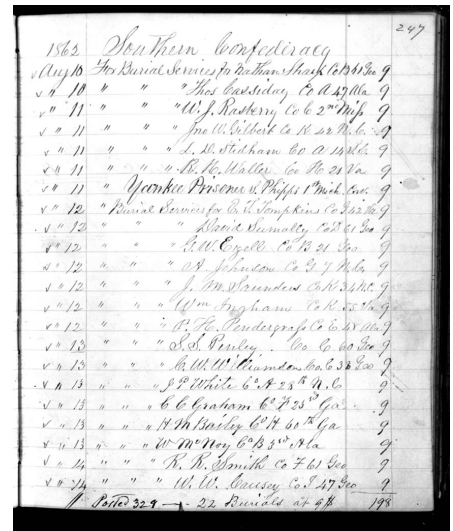 247
1862 Southern Confederacy
✓ Aug 10 For Burial Services for Nathan Sharp Co B 61 Geo 9
✓ " 10 " " " Thos Cassiday Co A 47 Ala 9
✓ " 11 " " " W. J. Rasberry Co C 2nd Miss 9
✓ " 11 " " " Jno W. Gilbert Co K 42 N.C. 9
✓ " 11 " " " L. D. Stidham Co A 14 9
✓ " 11 " " " R. H. Waller Co H 21 Va 9
✓ " 11 " Yankee Prisoner S. Phipps 1st Mich. Cav. 9
✓ " 12 " Burial Services for E. T. Tompkins Co G 42 Va 9
✓ " 12 " David Co D 61 Geo 9
✓ " 12 " " " G. W. Ezell Co B 21 Geo 9
✓ " 12 " " " A. Johnson Co G 7 N.C. 9
✓ " 12 " " " J. M. Saunders Co K 34 N.C. 9
✓ " 12 " " " Wm Ingham Co K 55 Va 9
✓ " 12 " " " P. H. Pendergrass Co C 48 Ala 9
✓ " 13 " " " S. S. Penley Co C 60 Geo 9
✓ " 13 " " " C. W. Williamson Co C 38 Geo 9
✓ " 13 " " " J P White Co A 28th N.C 9
✓ " 13 " " " C C Graham Co F 25 Ga 9
✓ " 13 " " " H M Bailey Co H 60th Ga 9
✓ " 13 " " " W McNoy Co B 3rd Ala 9
✓ " 14 " " " R. R. Smith Co F 61 Geo 9
✓ " 14 " " " W. W. Causey Co I 47 Geo 9
Posted 329 22 Burials at 9$ 198